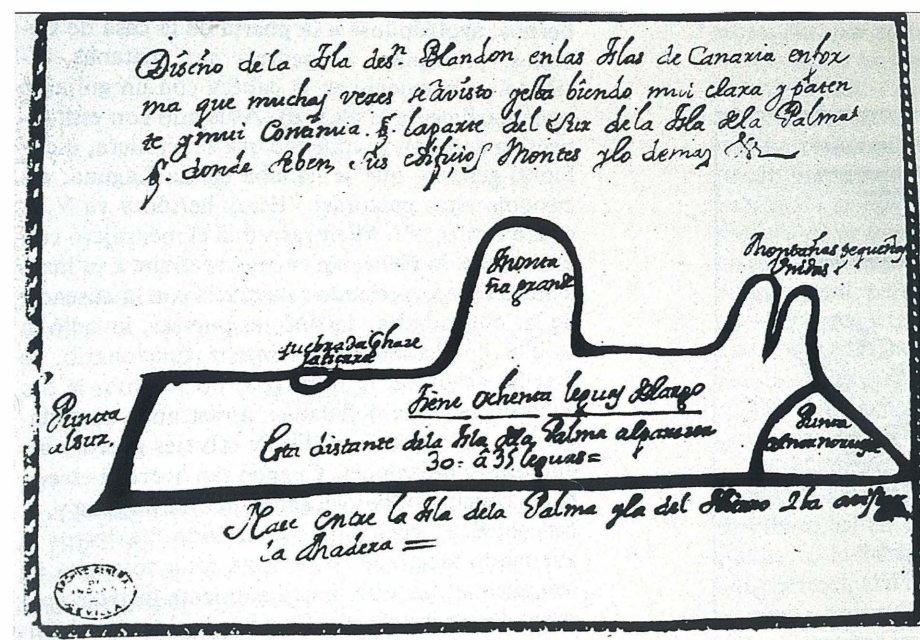 Diseño dela Isla desn. Blandon enlas Islas de Canaria enfor
ma que muchas vezes seavisto yesta biendo mui clara y paten
te ymui Continua laparte del Sur dela Isla dela Palma
donde sus edificios Montes ylo demas
Monta
ña grande
Montañas pequeñas
Unidas
quebrada Ghase
Puncta
alsur
Tiene Ochenta leguas Elargo
Esta distante dela Isla dela Palma alparezer
30 â 35 leguas=
Punta
Nase entre la Isla dela Palma yla del
a Madera =
ARCHIVO GENERAL
DE
SEVILLA